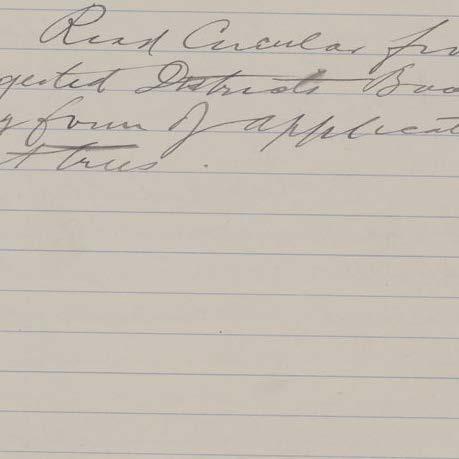 Read Circular fro
gested Districts Boa
g form of applicat
t trees.